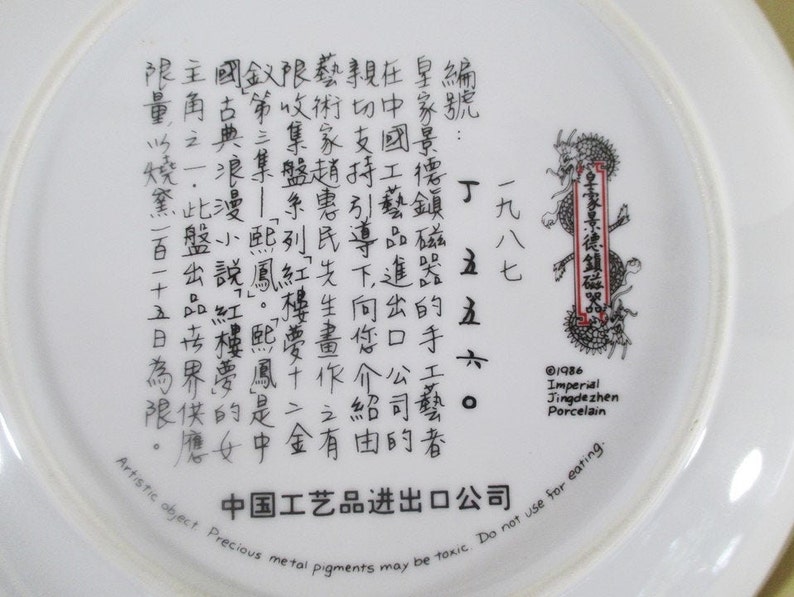 皇家景德鎮磁器品
©1986
Imperial
Jingdezhen
Porcelain
一九八七
編號： 丁五五六〇
皇家景德鎮磁器的手工藝者
在中國工藝品進出口公司的
親切支持引導下，向您介紹由
藝術家趙惠民先生畫作之有
限收集盤系列「紅樓夢十二金
釵」第三集—「熙鳳」。「熙鳳」是中
國古典浪漫小說「紅樓夢」的女
主角之一．此盤出品世界供應
限量，以燒窯一百一十五日為限。
中国工艺品进出口公司
Artistic object. Precious metal pigments may be toxic. Do not use for eating.